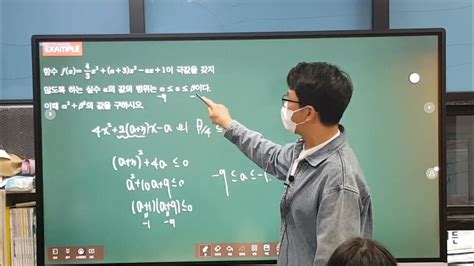 EXAMPLE
함수 f(x)=4/3x³+(a+3)x²-ax+1이 극값을 갖지
않도록 하는 실수 a의 값의 범위는 α≤a≤β이다.
-9
이때 α²+β²의 값을 구하시오.
4x²+2(a+3)x-a 의 D/4 ≤
(a+3)²+4a≤0
a²+10a+9≤0
-9≤a≤-1
(a+1)(a+9)≤0
-1 -9